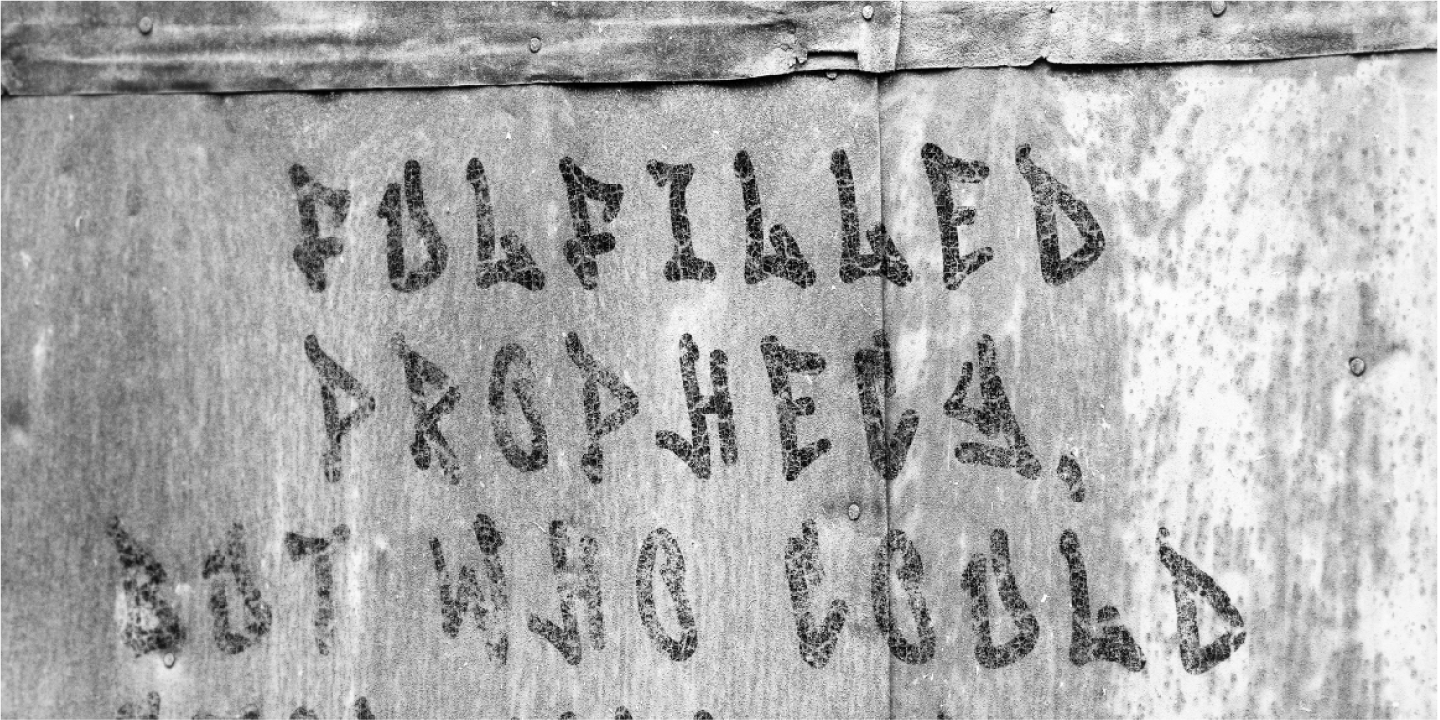 FULFILLED
PROPHECY,
BUT WHO COULD